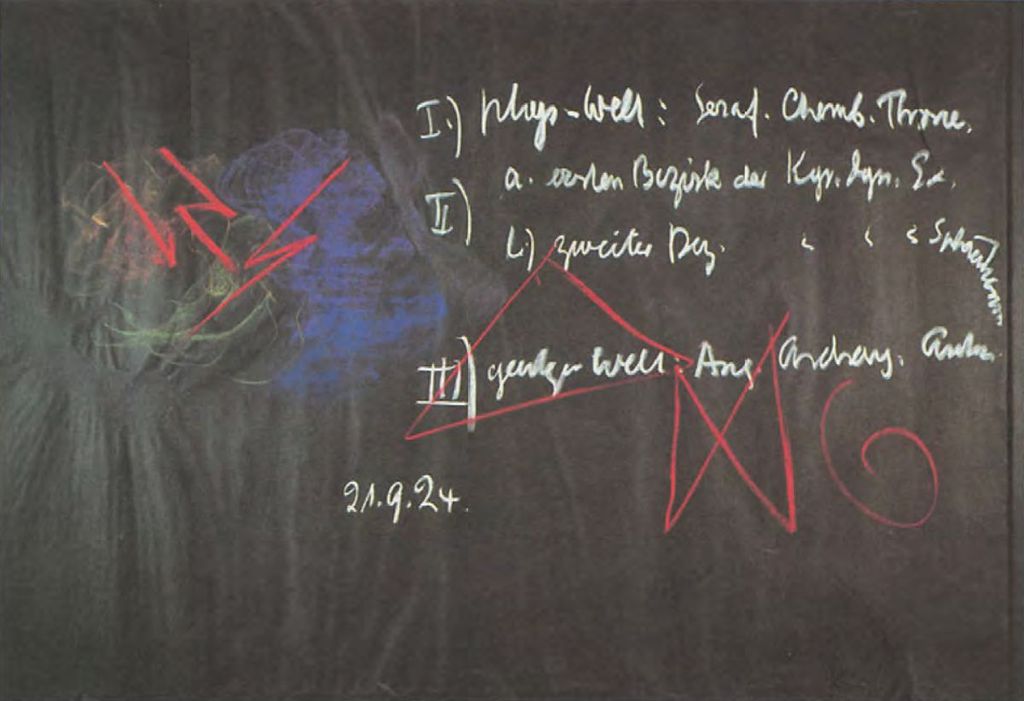 I.) phys-Welt: Seraf. Cherub. Throne.
II) a. ersten Bezirk der Kyr. Dyn. Ex.
b.) zweiter Bez. " " " Sphärenharm
III) geistger Welt: Ang. Archang. Archai
21.9.24.